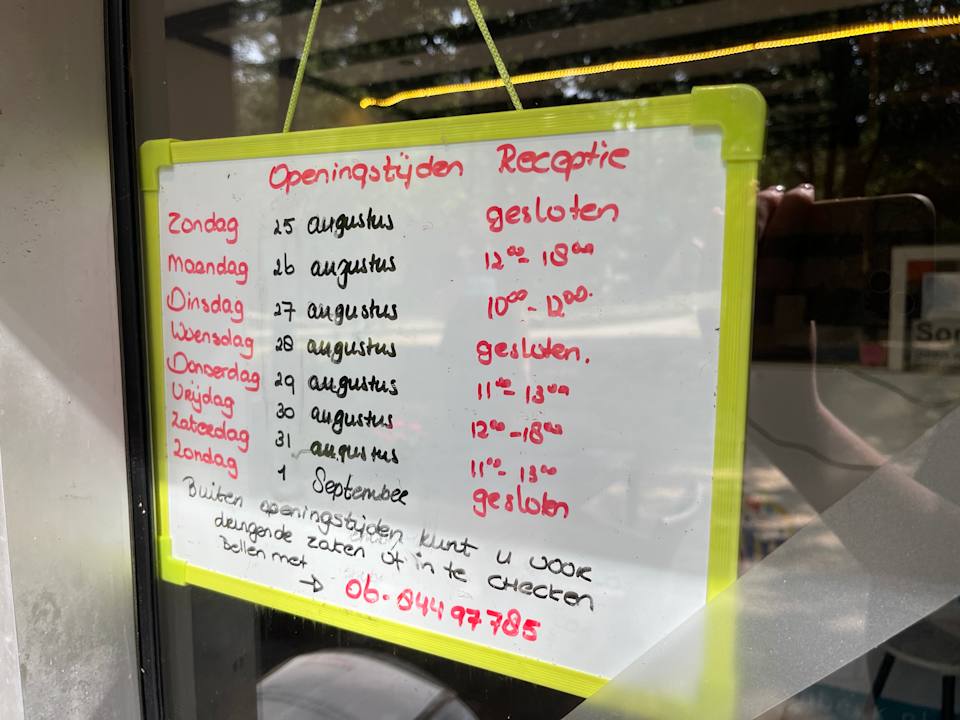 Openingstijden Receptie
Zondag 25 augustus gesloten
Maandag 26 augustus 12⁰⁰- 18⁰⁰
Dinsdag 27 augustus 10⁰⁰ - 12⁰⁰.
Woensdag 28 augustus gesloten.
Donserdag 29 augustus 11⁰⁰- 13⁰⁰
Vrijdag 30 augustus 12⁰⁰ - 18⁰⁰
Zaterdag 31 augustus 11⁰⁰- 13⁰⁰
Zondag 1 September gesloten
Buiten openingstijden kunt u voor
dringende zaken of in te CHECKEN
Bellen met
→ 06. 84497785